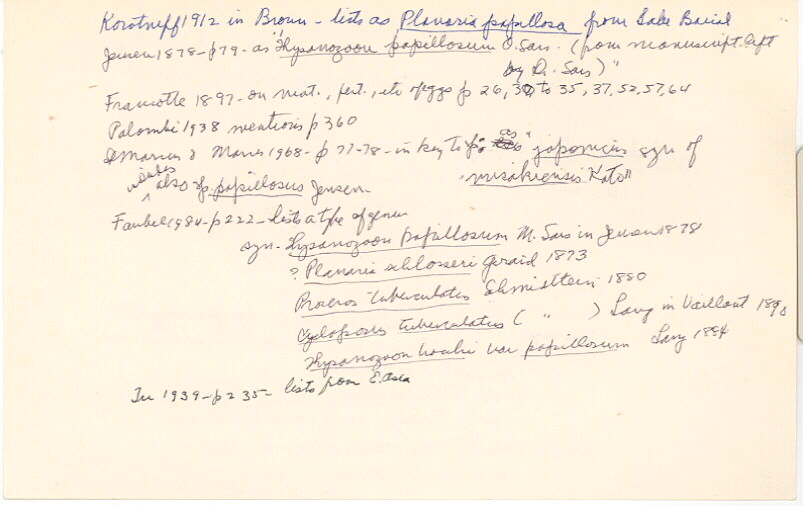 Korotneff 1912 in Bronn - lists as Planaria papillosa from Lake Baical
Jensen 1878 - p 79 - as "Thysanozoon papillosum O. Sars. (from manuscript left
by D. Sars)"
Francotte 1897 - on mat., fert., etc of eggs p 26, 30 to 35, 37, 52, 57, 64
Palombi 1938 mentions p 360
Marcus & Marcus 1968 - p 77-78 - in key to sp. as "japonicus syn of
also sp. papillosus Jensen. "misakiensis Kato"
Faubel 1984 - p 222 - lists a type of genus
syn - Thysanozoon papillosum M. Sars in Jensen 1878
? Planaria schlosseri Geraid 1873
Proceros tuberculatus Schmidtlein 1880
Cycloporus tuberculatus ( " ) Lang in Vaillant 1890
Thysanozoon brochii var papillosum Lang 1884
In 1939 - p 235 - lists from E. Asia